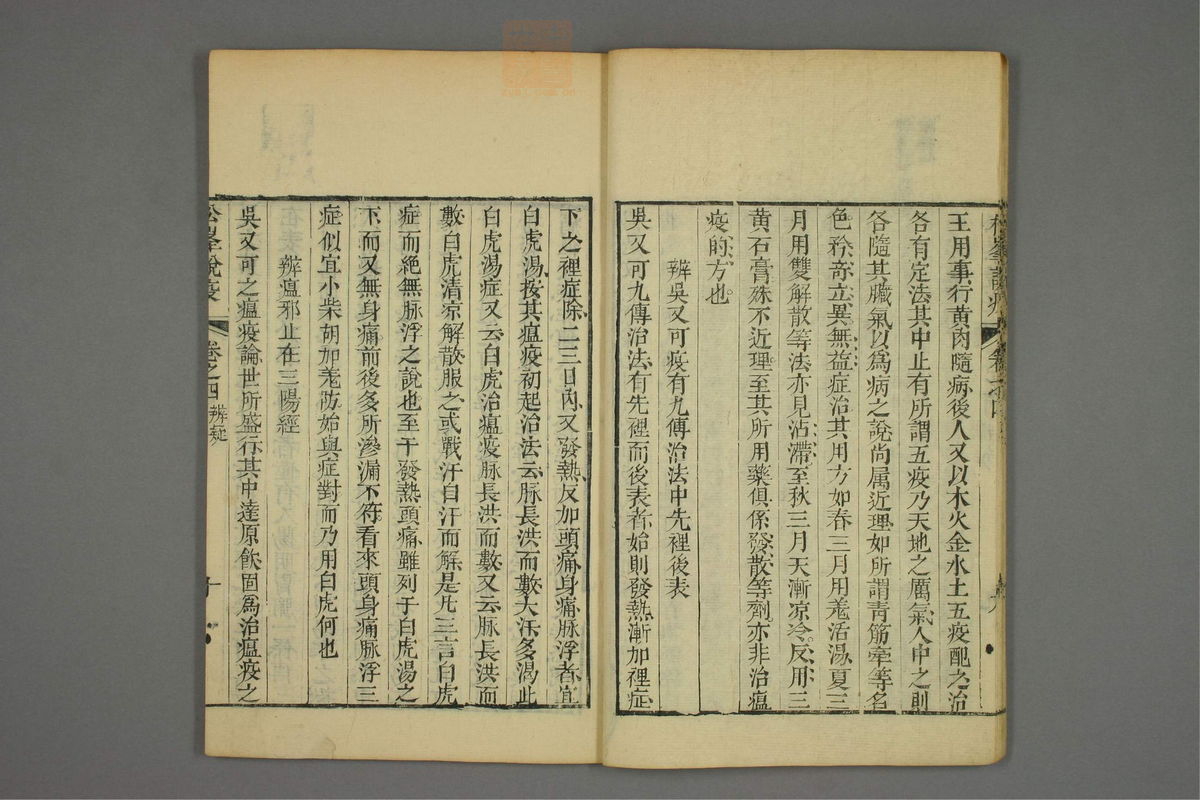 王用事行黃肉隨病後人又以木火金水土五疫配之治
各有定法其中止有所謂五疫乃天地之厲氣人中之則
各隨其臟氣以爲病之說尚属近理如所謂青筋牽等名
色矜奇立異無益症治其用方如春三月用羗活湯夏三
月用雙解散等法亦見沾滯至秋三月天漸凉冷反用三
黃石膏殊不近理至其所用藥俱係發散等劑亦非治瘟
疫的方也
辨吳又可疫有九傳治法中先裡後表
吳又可九傳治法有先裡而後表者始則發熱漸加裡症
下之裡症除二三日內又發熱反加頭痛身痛脉浮者宜
白虎湯按其瘟疫初起治法云脉長洪而數大汗多渴此
白虎湯症又云白虎治瘟疫脉長洪而數又云脉長洪而
數白虎清凉解散服之或戰汗自汗而解是凢三言白虎
症而絕無脉浮之說也至于發熱頭痛雖列于白虎湯之
下而又無身痛前後多所滲漏不符看來頭身痛脉浮三
症似宜小柴胡加羗防始與症對而乃用白虎何也
辨瘟邪止在三陽經
吳又可之瘟疫論世所盛行其中達原飲固爲治瘟疫之
松峯說疫
卷之四
辨疑
十